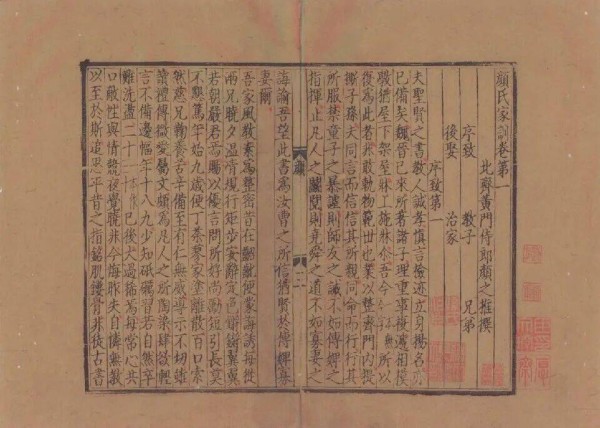 顔氏家訓卷第一
北齊黄門侍郎顔之推撰
序致 教子 兄弟
後娶 治家
序致第一
夫聖賢之書教人誠孝慎言檢迹立身揚名亦
已備矣魏晉已來所著諸子理重事複遞相模
斆猶屋下架屋牀上施牀尒吾今無所以
復為此者非敢軌物範世也業以整齊門内提
撕子孫夫同言而信信其所親同命而行行其
所服禁童子之暴謔則師友之誡不如傅婢之
指揮止凡人之鬭鬩則堯舜之道不如寡妻之
誨諭吾望此書為汝曹之所信猶賢於傅婢寡
妻爾
顔
二
吾家風教素為整密昔在齠齔便蒙誨誘每從
兩兄曉夕温凊規行矩步安辭定色鏘鏘翼翼
若朝嚴君焉賜以優言問所好尚勵短引長莫
不懇篤年始九歲便丁荼蓼家塗離散百口索
然慈兄鞠養苦辛備至有仁無威導示不切雖
讀禮傳微愛屬文頗為凡人之所陶染肆欲輕
言不備邊幅年十八九少知砥礪習若自然卒
難洗盪二十已後大過稀焉每常心共
口敵性與情競夜覺曉非今悔昨失自憐無教
以至於斯追思平昔之指銘肌鏤骨非徒古書